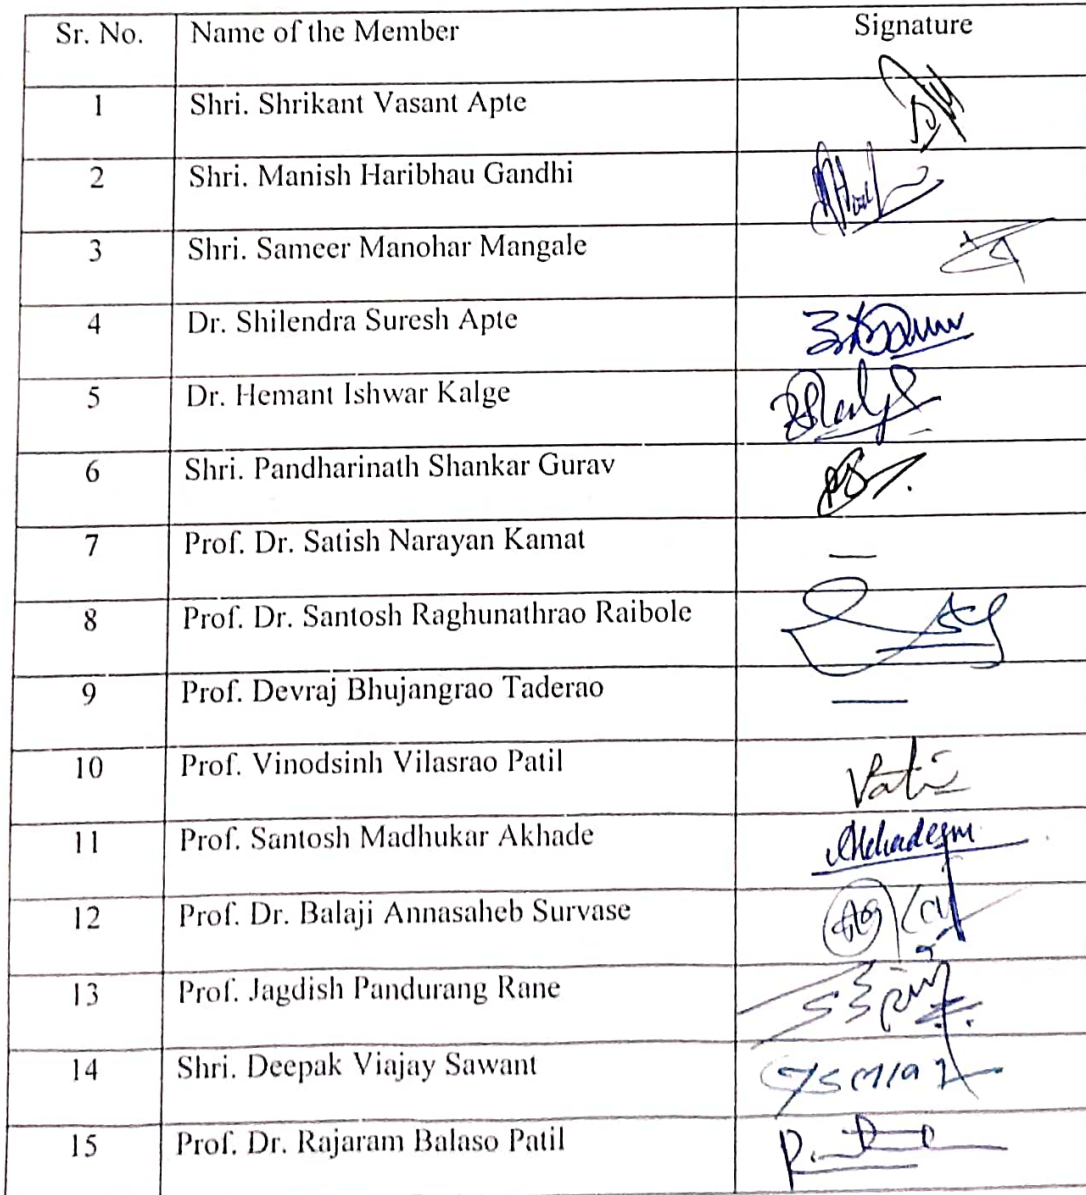 Sr. No. Name of the Member Signature
1 Shri. Shrikant Vasant Apte
2 Shri. Manish Haribhau Gandhi
3 Shri. Sameer Manohar Mangale
4 Dr. Shilendra Suresh Apte
5 Dr. Hemant Ishwar Kalge
6 Shri. Pandharinath Shankar Gurav
7 Prof. Dr. Satish Narayan Kamat —
8 Prof. Dr. Santosh Raghunathrao Raibole
9 Prof. Devraj Bhujangrao Taderao —
10 Prof. Vinodsinh Vilasrao Patil
11 Prof. Santosh Madhukar Akhade
12 Prof. Dr. Balaji Annasaheb Survase
13 Prof. Jagdish Pandurang Rane
14 Shri. Deepak Viajay Sawant
15 Prof. Dr. Rajaram Balaso Patil